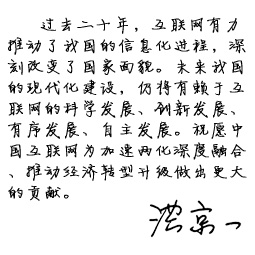 过去二十年，互联网有力
推动了我国的信息化过程，深
刻改变了国家面貌。未来我国
的现代化建设，仍将有赖于互
联网的科学发展、创新发展、
有序发展、自主发展。祝愿中
国互联网为加速两化深度融合
、推动经济转型升级做出更大
的贡献。